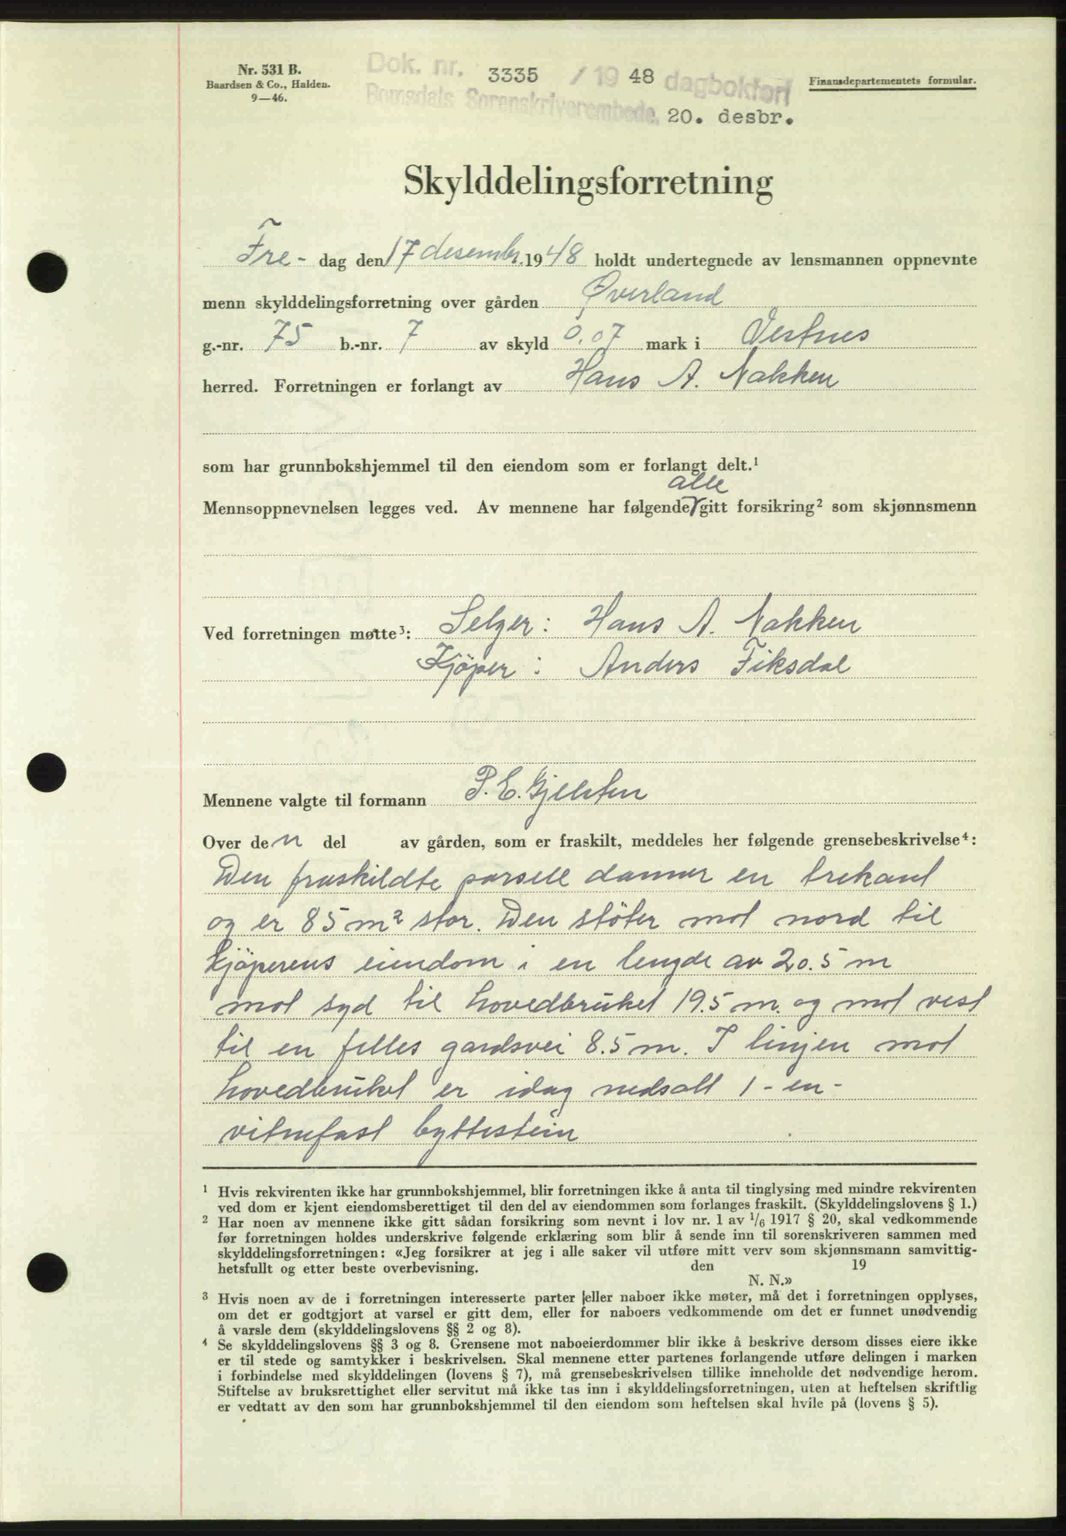 Nr. 531 B.
Baardsen & Co., Halden.
9—46.
Dok. nr. 3335 / 19 48 dagbokført
Romsdals Sorenskriverembede, 20. desbr.
Finansdepartementets formular.
Skylddelingsforretning
Fre- dag den 17 desembr. 1948 holdt undertegnede av lensmannen oppnevnte
menn skylddelingsforretning over gården Øverland
g.-nr. 75 b.-nr. 7 av skyld 0.07 mark i Vestnes
herred. Forretningen er forlangt av Hans A. Nakken
som har grunnbokshjemmel til den eiendom som er forlangt delt.¹
alle
Mennsoppnevnelsen legges ved. Av mennene har følgende gitt forsikring² som skjønnsmenn
Ved forretningen møtte³: Selger: Hans A. Nakken
Kjöper: Anders Fiksdal
Mennene valgte til formann P. E. Gjelsten
Over den del av gården, som er fraskilt, meddeles her følgende grensebeskrivelse⁴:
Den fraskildte parsell danner en trekant
og er 85 m² stor. Den stöter mot nord til
kjöperens eiendom i en lengde av 20.5 m
mot syd til hovedbruket 19.5 m. og mot vest
til en felles gardsvei 8.5 m. I linjen mot
hovedbruket er idag nedsatt 1 - en -
vitnefast byttestein
¹ Hvis rekvirenten ikke har grunnbokshjemmel, blir forretningen ikke å anta til tinglysing med mindre rekvirenten
ved dom er kjent eiendomsberettiget til den del av eiendommen som forlanges fraskilt. (Skylddelingslovens § 1.)
² Har noen av mennene ikke gitt sådan forsikring som nevnt i lov nr. 1 av 1/6 1917 § 20, skal vedkommende
før forretningen holdes underskrive følgende erklæring som blir å sende inn til sorenskriveren sammen med
skylddelingsforretningen: «Jeg forsikrer at jeg i alle saker vil utføre mitt verv som skjønnsmann samvittig-
hetsfullt og etter beste overbevisning. den 19
N. N.»
³ Hvis noen av de i forretningen interesserte parter eller naboer ikke møter, må det i forretningen opplyses,
om det er godtgjort at varsel er gitt dem, eller for naboers vedkommende om det er funnet unødvendig
å varsle dem (skylddelingslovens §§ 2 og 8).
⁴ Se skylddelingslovens §§ 3 og 8. Grensene mot naboeierdommer blir ikke å beskrive dersom disses eiere ikke
er til stede og samtykker i beskrivelsen. Skal mennene etter partenes forlangende utføre delingen i marken
i forbindelse med skylddelingen (lovens § 7), må grensebeskrivelsen tillike inneholde det nødvendige herom.
Stiftelse av bruksrettighet eller servitut må ikke tas inn i skylddelingsforretningen, uten at heftelsen skriftlig
er vedtatt av den som har grunnbokshjemmel til den eiendom som heftelsen skal hvile på (lovens § 5).